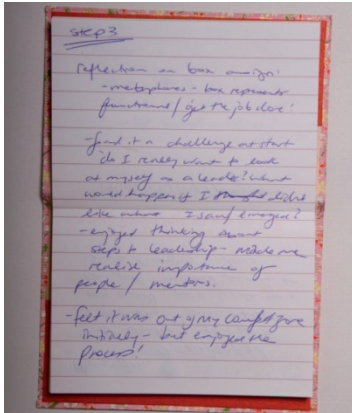 step 3
reflection on box design:
- metaphores - box represents
/ get the job done!
- found it a challenge at start
'do I really want to look
at myself as a leader? what
would happen if I didnt
like what I saw/ emerged?
- enjoyed thinking about
steps to leadership - made me
realise importance of
people / mentors.
- felt it was out of my comfort zone
initially - but enjoyed the
process!